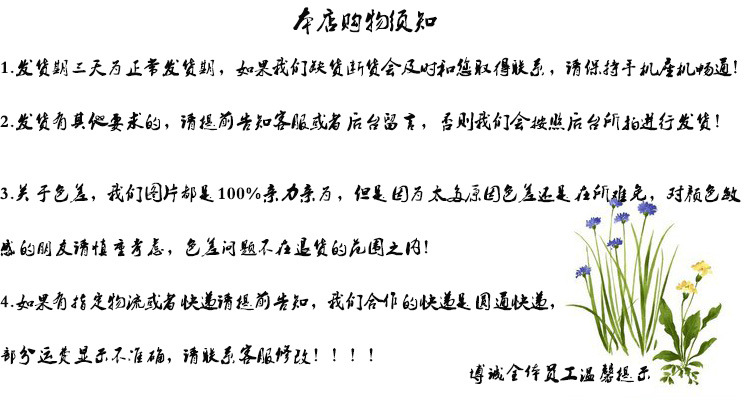 本店购物须知
1.发货期三天为正常发货期，如果我们缺货断货会及时和您取得联系，请保持手机座机畅通!
2.发货有其他要求的，请提前告知客服或者后台留言，否则我们会按照后台所拍进行发货!
3.关于色差，我们图片都是100%亲力亲为，但是因为太多原因色差还是在所难免，对颜色敏
感的朋友请慎重考虑，色差问题不在退货的范围之内!
4.如果有指定物流或者快递请提前告知，我们合作的快递是圆通快递，
部分运费显示不准确，请联系客服修改! ! ! !
博诚全体员工温馨提示